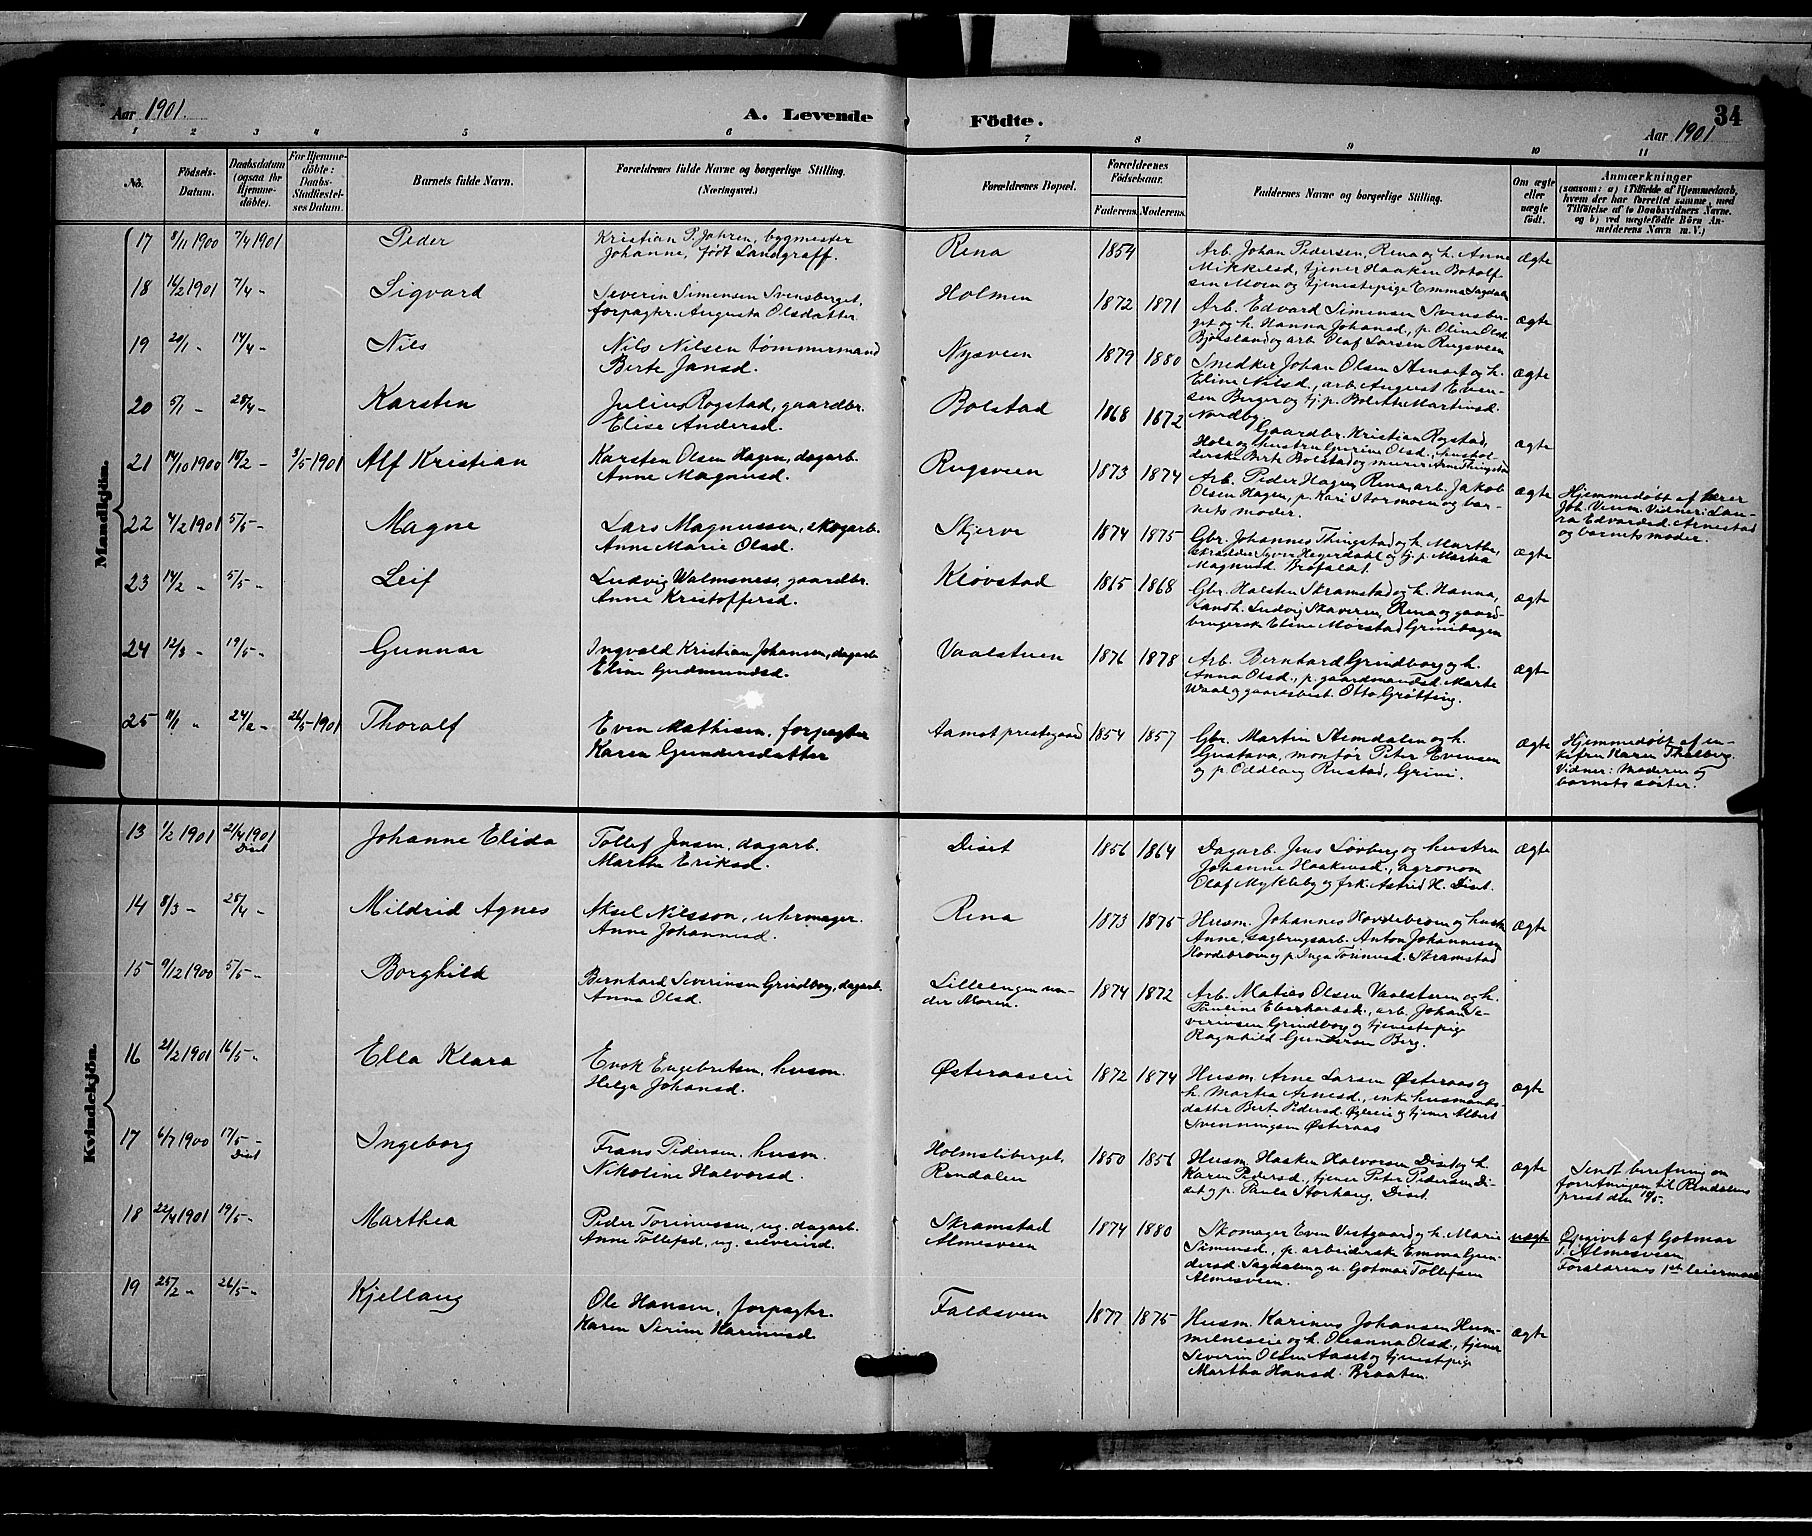 Aar 1901.
A. Levende
Födte.
34
Aar 1901
1 2 3 4 5 6 7 8 9 10 11
No.
Födsels-
Datum.
Daabsdatum
(ogsaa for
Hjemme-
döbte).
For Hjemme-
döbte:
Daabs-
Stadfæstel-
ses Datum.
Barnets fulde Navn.
Forældrenes fulde Navne og borgerlige Stilling.
(Næringsvei.)
Forældrenes Bopæl.
Forældrenes
Födselsaar.
Faderens. Moderens.
Faddernes Navne og borgerlige Stilling.
Om ægte
eller
uægte
födt.
Anmærkninger
(saasom: a) i Tilfælde af Hjemmedaab,
hvem der har forrettet samme, med
Tilföielse af to Daabsvidners Navne,
og b) ved uægtefödte Börn An-
melderens Navn m. V.)
Mandkjön.
17 8/11 1900 7/4 1901 Peder
Kristian P. Jahren, bygmester
Johanne, født Landgraff.
Rena 1854
Arb. Johan Pedersen, Rena og h. Anne
Mikkelsd., tjener Haaken Botolf-
sen Moen og tjenestepige Emma Sagdalen
ægte
18 14/2 1901 7/4 - Sigvard
Severin Simensen Svensberget,
forpagtr. Augusta Olsdatter.
Holmen 1872 1871
Arb. Edvard Simensen Svensber-
get og h. Hanna Johansd., p. Oline Olsd.
Bjølsland og arb. Olaf Larsen Rugsveen
ægte
19 20/1 - 14/4 - Nils
Nils Nilsen tømmermand
Berte Jansd.
Nysveen 1879 1880
Snedker Johan Olsen Arnset og h.
Eline Nilsd., arb. August Even-
sen Berger og tj. p. Bolette Martinsd.
Nordby
ægte
20 5/1 - 28/4 - Karsten
Julius Rogstad, gaardbr.
Elise Andersd.
Bolstad 1868 1872
Gaardbr. Kristian Rogstad,
Hole og hustru Gurine Olsd., hushol-
derske Berte Bolstad og murer Arne Thingstad
ægte
21 14/10 1900 18/2 - 3/5 1901 Alf Kristian
Karsten Olsen Hagen, dagarb.
Anne Magnusd.
Rugsveen 1873 1874
Arb. Peder Hagen, Rena, arb. Jakob
Olsen Hagen, p. Kari Stormoen og bar-
nets moder.
ægte
Hjemmedøbt af lærer
Joh. Veum. Vidner: Lau-
ra Edvardsd. Arnestad
og barnets moder.
22 4/2 1901 5/5 - Magne
Lars Magnussen, skogarb.
Anne Marie Olsd.
Skjerve 1874 1875
Gbr. Johannes Thingstad og h. Marthe,
skrædder Syver Heyerdahl og tj. p. Martea
Magnusd. Brofaldet.
ægte
23 14/2 - 5/5 - Leif
Ludvig Walmsness, gaardbr.
Anne Kristoffersd.
Kløvstad 1865 1868
Gbr. Halsten Skramstad og h. Hanna,
Landh. Ludvig Skaveren, Rena og gaard-
brugersk. Eline Mørstad Grinihagen
ægte
24 12/3 - 19/5 - Gunnar
Ingvald Kristian Johansen, dagarb.
Eline Gudmundsd.
Vaalstuen 1876 1878
Arb. Bernhard Grindborg og h.
Anna Olsd., p. gaardmandsd. Marte
Waal og gaardsbest. Otto Grøtting.
ægte
25 11/1 - 24/2 - 26/5 1901 Thoralf
Even Mathisen, forpagter
Karen Gundersdatter
Aamot prestegaard 1854 1857
Gbr. Martin Stemdalen og h.
Gustava, montør Peter Evensen
og p. Oddlaug Rustad, Grini.
ægte
Hjemmedøbt af en-
kefru Karen Thalberg.
Vidner: Moderen og
barnets søster.
Kvindekjön.
13 1/2 1901 21/4 1901 Diset Johanne Elida
Tollef Jensen, dagarb.
Marthe Eriksd.
Diset 1856 1864
Dagarb. Jens Løvberg og hustru
Johanne Haakensd., agronom
Olaf Mykleby og frk. Astrid H. Diset.
ægte
14 8/3 - 28/4 - Mildrid Agnes
Aksel Nilsson, uhrmager.
Anne Johannesd.
Rena 1873 1875
Husm. Johannes Hovdebroen og hustru
Anne, sagbrugsarb. Anton Johannessen
Hovdebroen og p. Inga Torinusd. Skramstad
ægte
15 9/12 1900 5/5 - Borghild
Bernhard Severinsen Grindborg, dagarb.
Anna Olsd.
Lilleengen un-
der Moren. 1874 1872
Arb. Matias Olsen Vaalstuen og h.
Pauline Eberhardsd., arb. Johan Se-
verinsen Grindborg og tjenestepig
Ragnhild Gundersen Berg.
ægte
16 21/2 1901 16/5 - Ella Klara
Enok Engebretsen, husm.
Helga Johansd.
Østeraaseie 1872 1874
Husm. Arne Larsen Østeraas og
h. Martea Arnesd., enke husmands-
datter Berte Pedersd. Øgleeie og tjener Albert
Svenningsen Østeraas
ægte
17 6/7 1900 17/5 - Diset Ingeborg
Frans Pedersen, husm.
Nikoline Halvorsd.
Holmsliberget,
Rendalen 1850 1856
Husm. Haaken Halvorsen Diset og h.
Karen Pedersd., tjener Peter Pedersen Di-
set og p. Paula Storhaug, Diset.
ægte
Sendt beretning om
forretningen til Rendalens
prest den 18/5.
18 22/4 1901 19/5 - Marthea
Peder Torinussen, ug. dagarb.
Anne Tollefsd., ug. selveierd.
Skramstad
Almesveen 1874 1880
Skomager Even Vestgaard og h. Marie
Simensd., p. arbeidersk. Emma Gun-
dersd. Sagdalen og u. Gotmar Tollefsen
Almesveen.
uægte
Opgivet af Gotmar
T. Almesveen
Forældrenes 1ste leiermaal
19 25/2 - 26/5 - Kjellaug
Ole Hansen, forpagtr.
Karen Serine Karinusd.
Faldsveen 1877 1875
Husm. Karinus Johansen Hum-
melneseie og h. Oleanna Olsd., tjener
Severin Olsen Aaset og tjenestepige
Martha Hansd. Braaten.
ægte